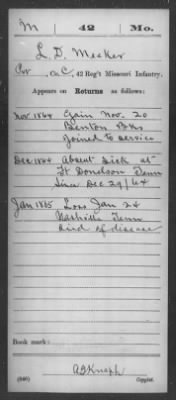 M 42 Mo.
L. D. Meeker
Pvt, Co. C, 42 Reg't Missouri Infantry.
Appears on Returns as follows:
Nov 1864 Gain Nov. 20
Benton Bks
joined to service
Dec 1864 Absent Sick at
Ft Donelson Tenn
Since Dec 29/64
Jan 1865 Loss Jan 24
Nashville Tenn
died of disease
Book mark:
(546)
Copyist.